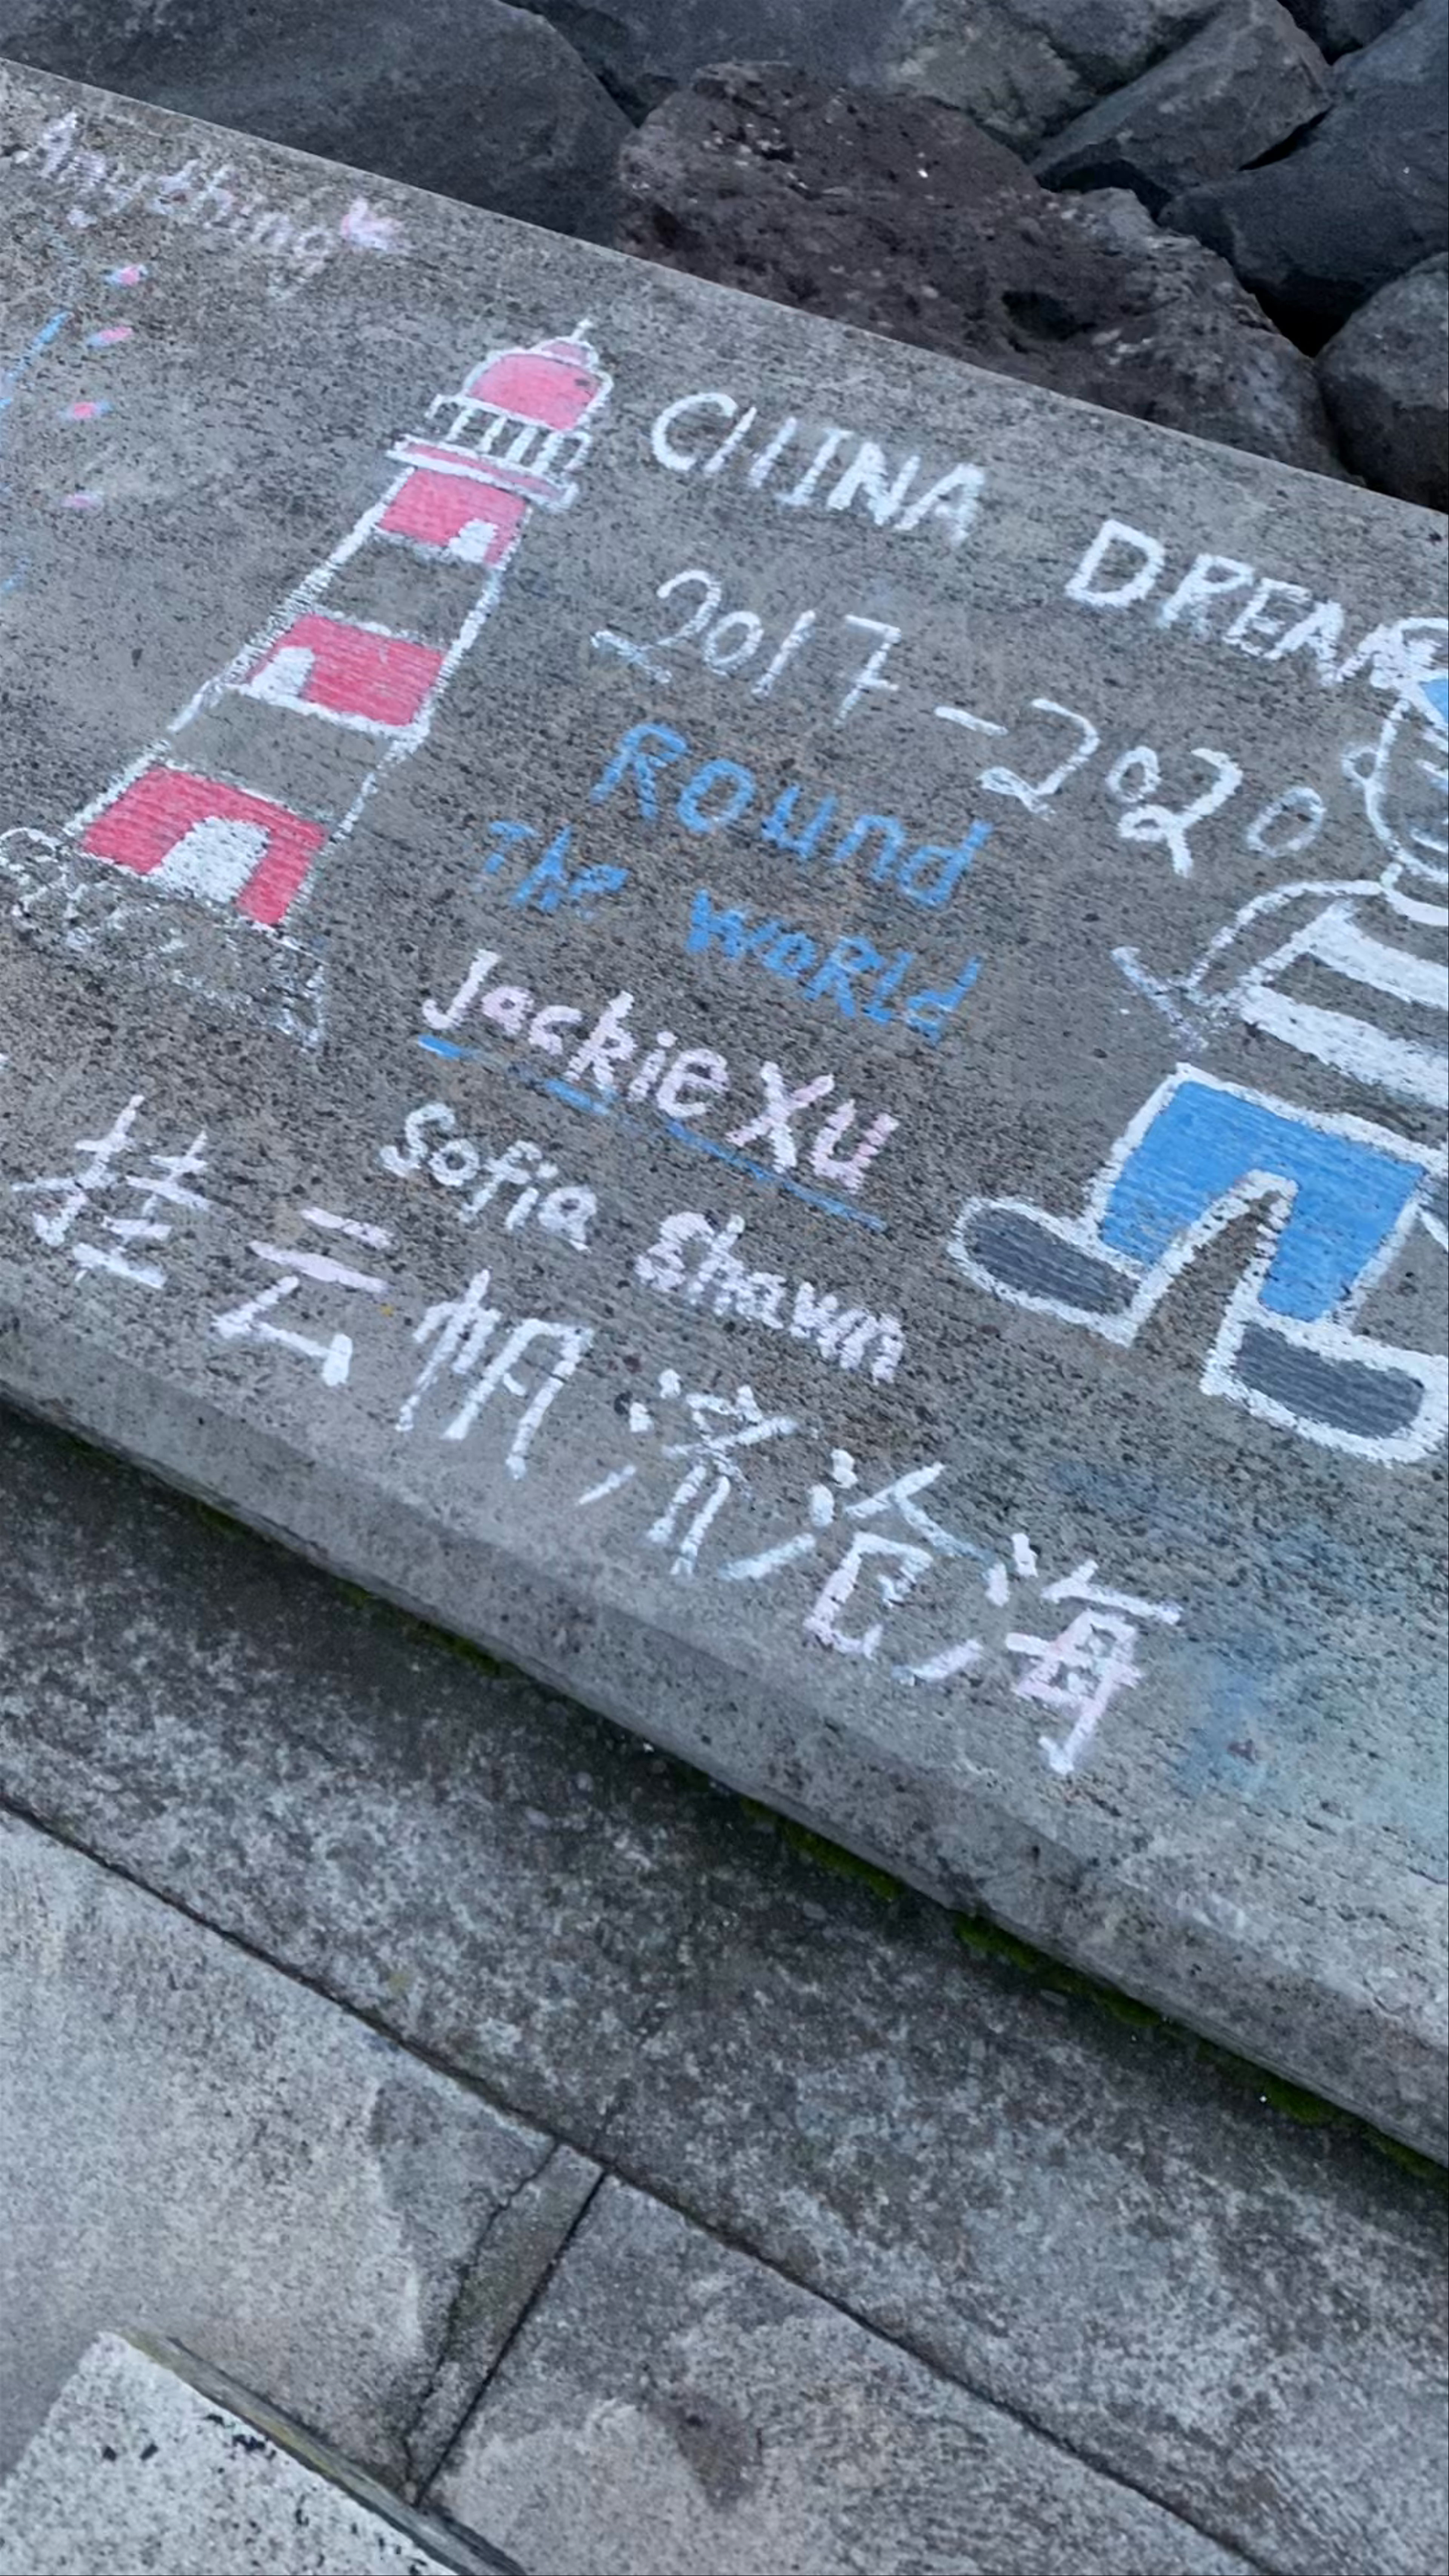 Anything
CHINA DREAM
2017-2020
Round
The WoRLd
Jackie XU
Sofia Shawn
挂云帆济沧海